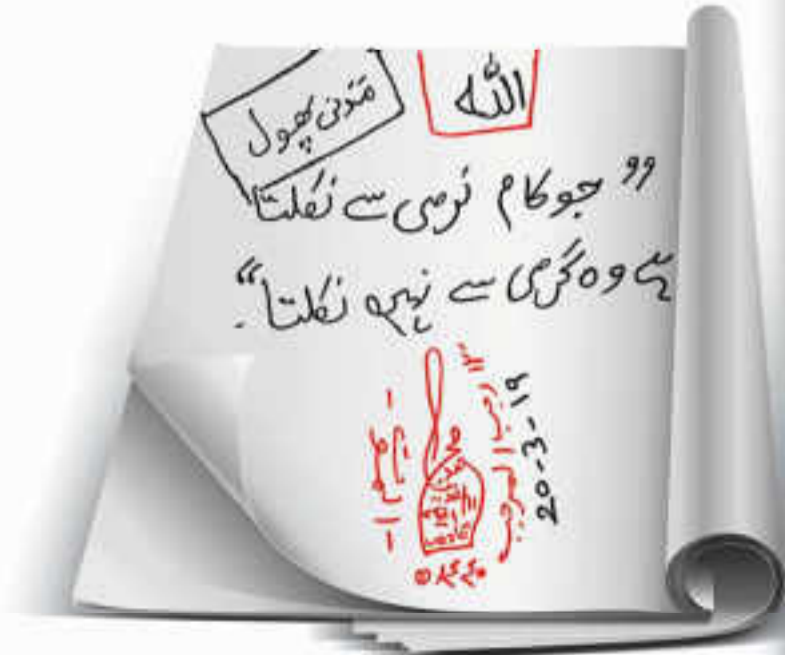 اللہ
مَدَنی پھول
”جو کام نرمی سے نکلتا
ہے وہ گرمی سے نہیں نکلتا“۔
رجب المرجب
20-3-19